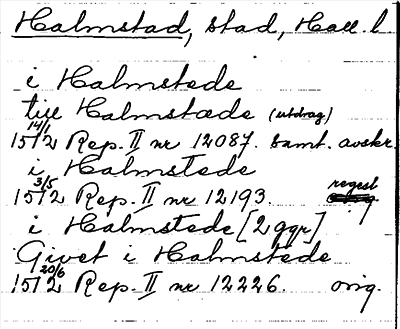 Halmstad, stad, Hall. l
i Halmstede
till Halmstæde (utdrag)
15 14/1 12 Rep. II nr 12087. samt. avskr.
i Halmstede
15 3/5 12 Rep. II nr 12193. regest
i Halmstede [2 ggr]
Givet i Halmstede
15 20/6 12 Rep. II nr 12226. orig.